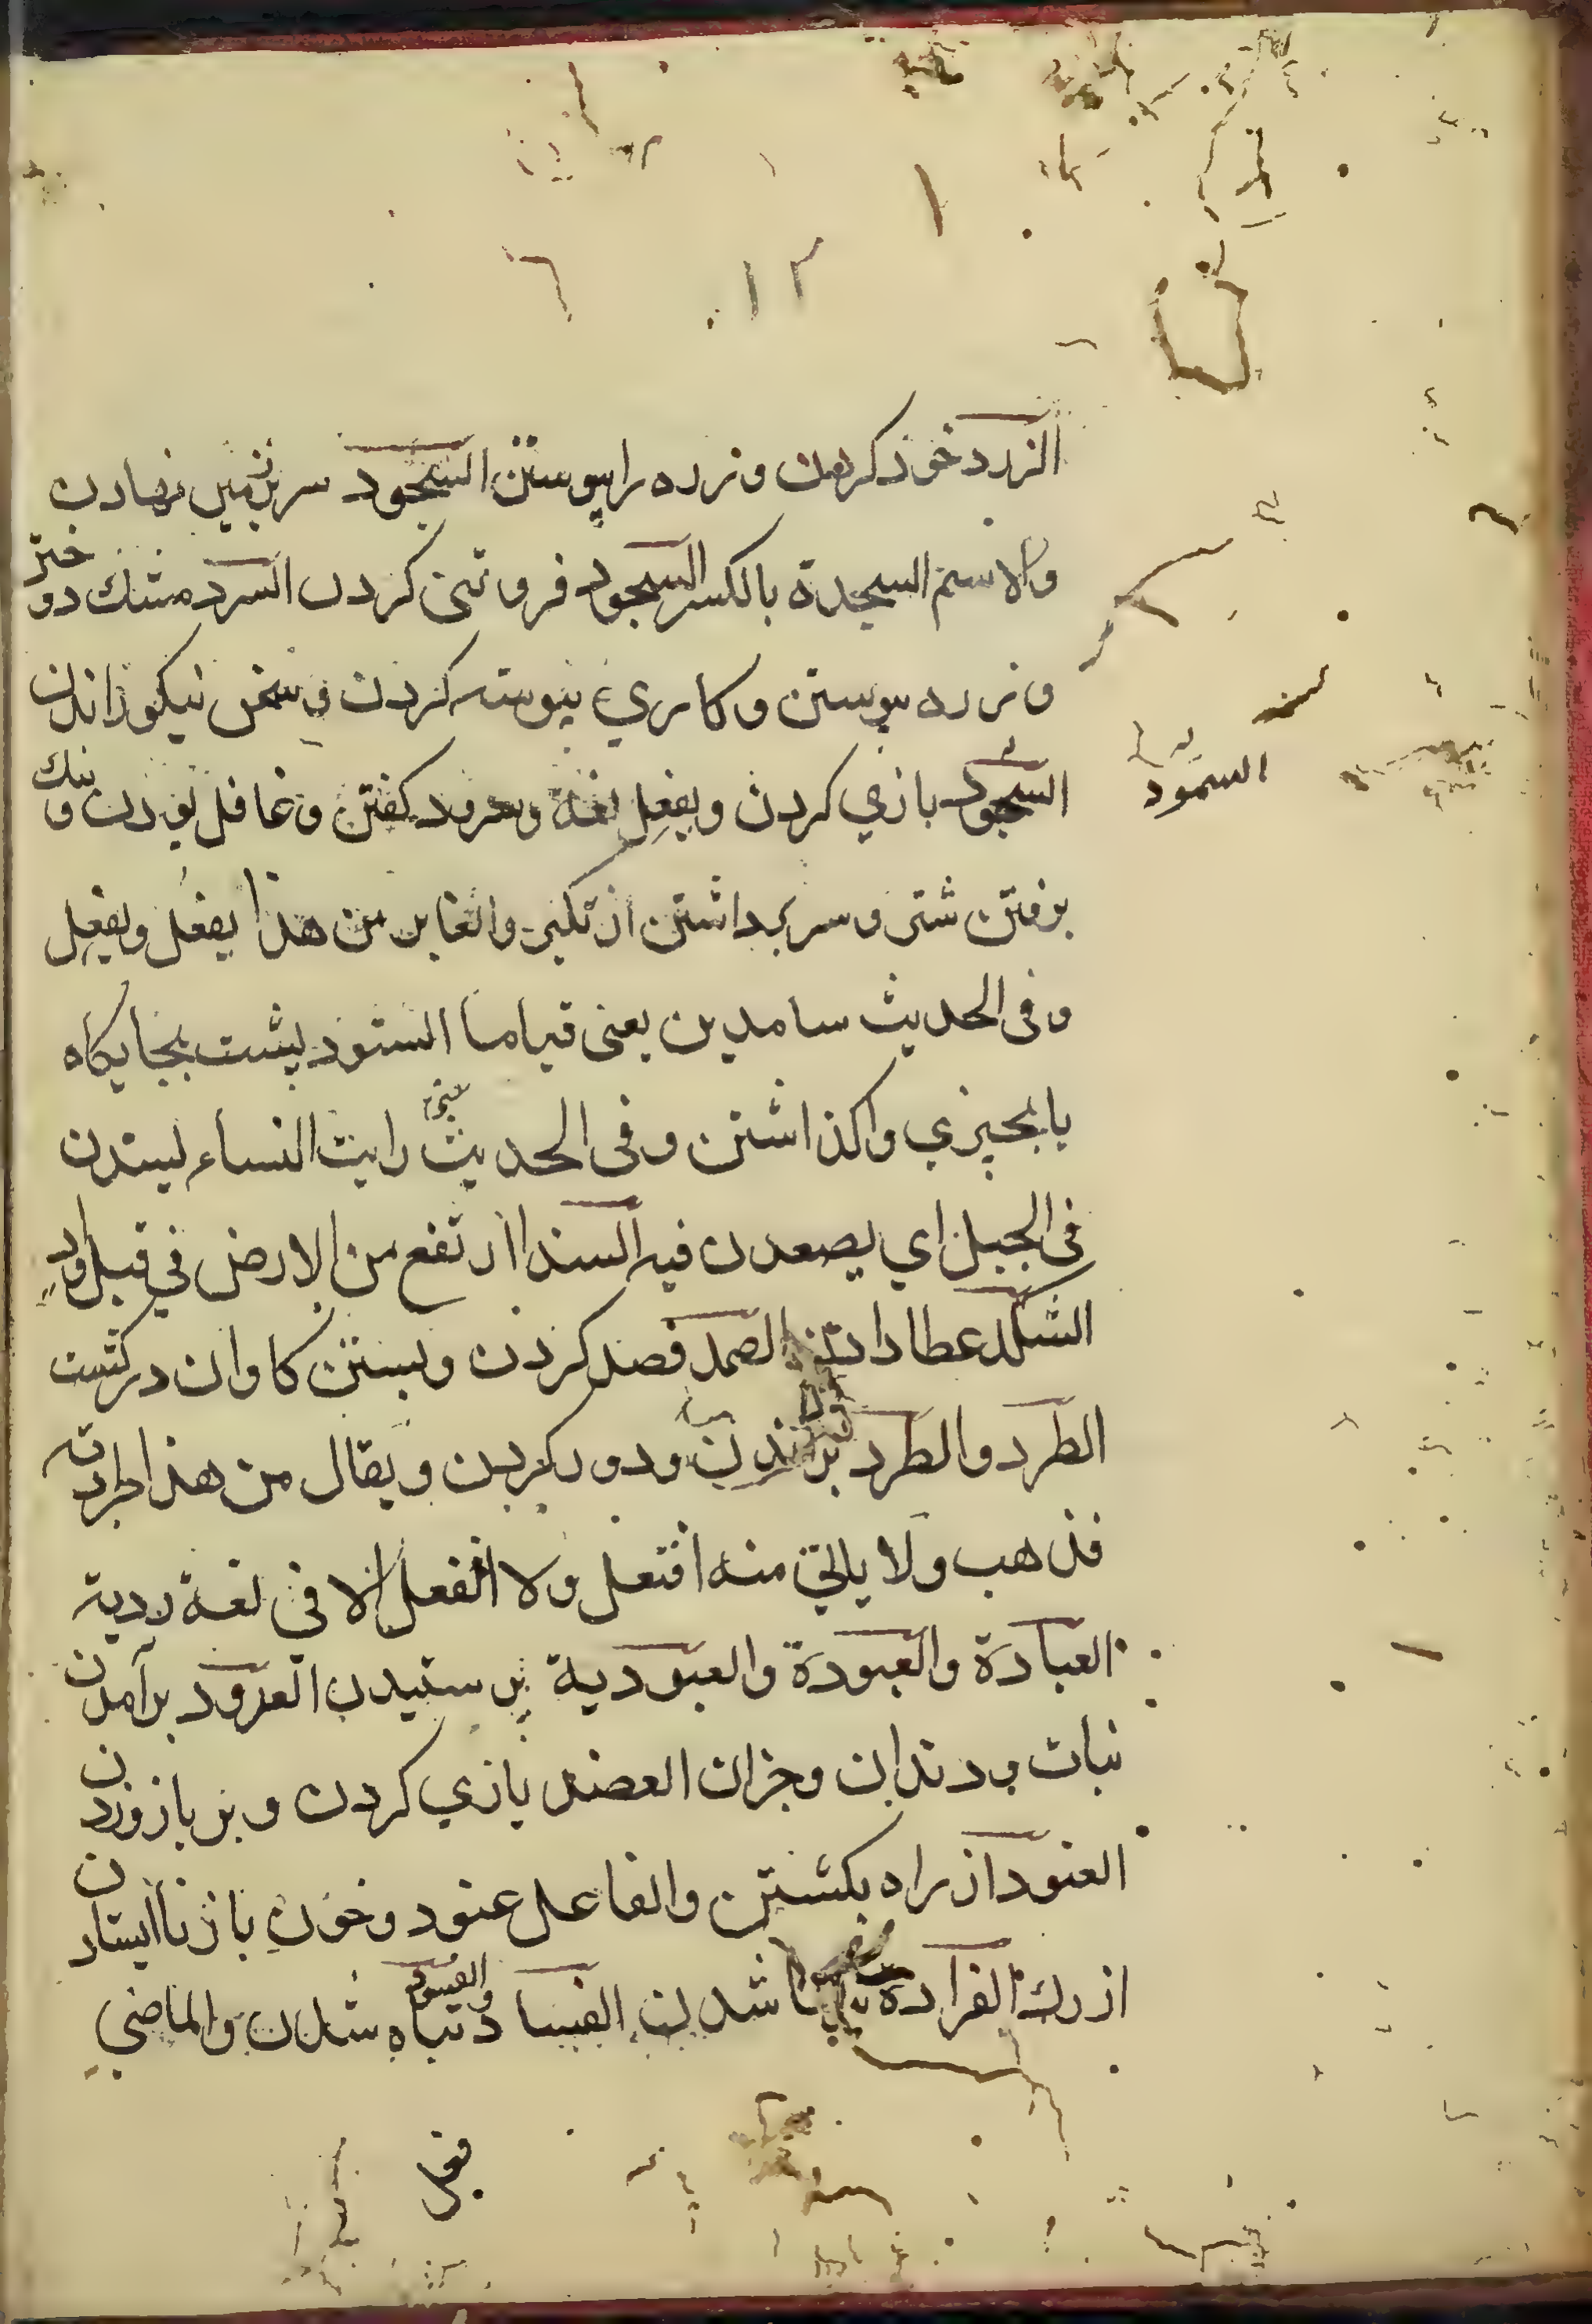 الزرد خوذ كردن و زره را پيوستن السجود سر بزمين نهادن
والاسم السجدة بالكسر السجود فروتنى كردن السرد مشك دوختن
و زره پيوستن و كاري پيوسته كردن و سخن نيكو راندن
السجود بازي كردن ويفعل لغة وسرود كفتن و غافل بودن و نيك
برفتن شتر و سر برداشتن از تكبر والغابر من هذا يفعل ويفعل
وفى الحديث سامدين يعنى قياما الستود پشت بجايكاه
يا بچيزي واكذاشتن وفى الحديث رايت النساء يسندن
فى الجبل اي يصعدن فيه السند ما ارتفع من الارض في قبل واد
الشكد عطا دادن الصمد قصد كردن وبستن كاوان در كشت
الطرد والطرد براندن ودور كردن ويقال من هذا طردته
فذهب ولا ياتي منه افتعل ولا انفعل الا في لغة ردية
العبادة والعبودة والعبودية پرستيدن العرود برآمدن
نبات ودندان وجزان العضد يازي كردن و بر بازو زدن
العنود از راه بكشتن والفاعل عنود وخون باز نا ايستادن
از رك الفرادة تنها شدن الفساد والفسود تباه شدن والماضي
فعل
السمود